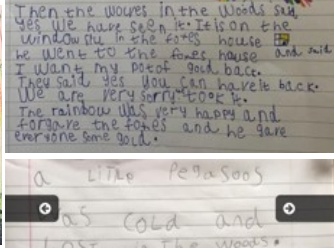 Then the wolves in the woods say
yes we have seen it. It is on the
window in the foxes house
he went to the foxes house and said
I want my pot of gold back.
They said yes you can have it back.
We are very sorry took it.
The rainbow was very happy and
forgave the foxes and he gave
everyone some gold.
a LiTTLe PegasooS
as COLD and
LOST in The woods.